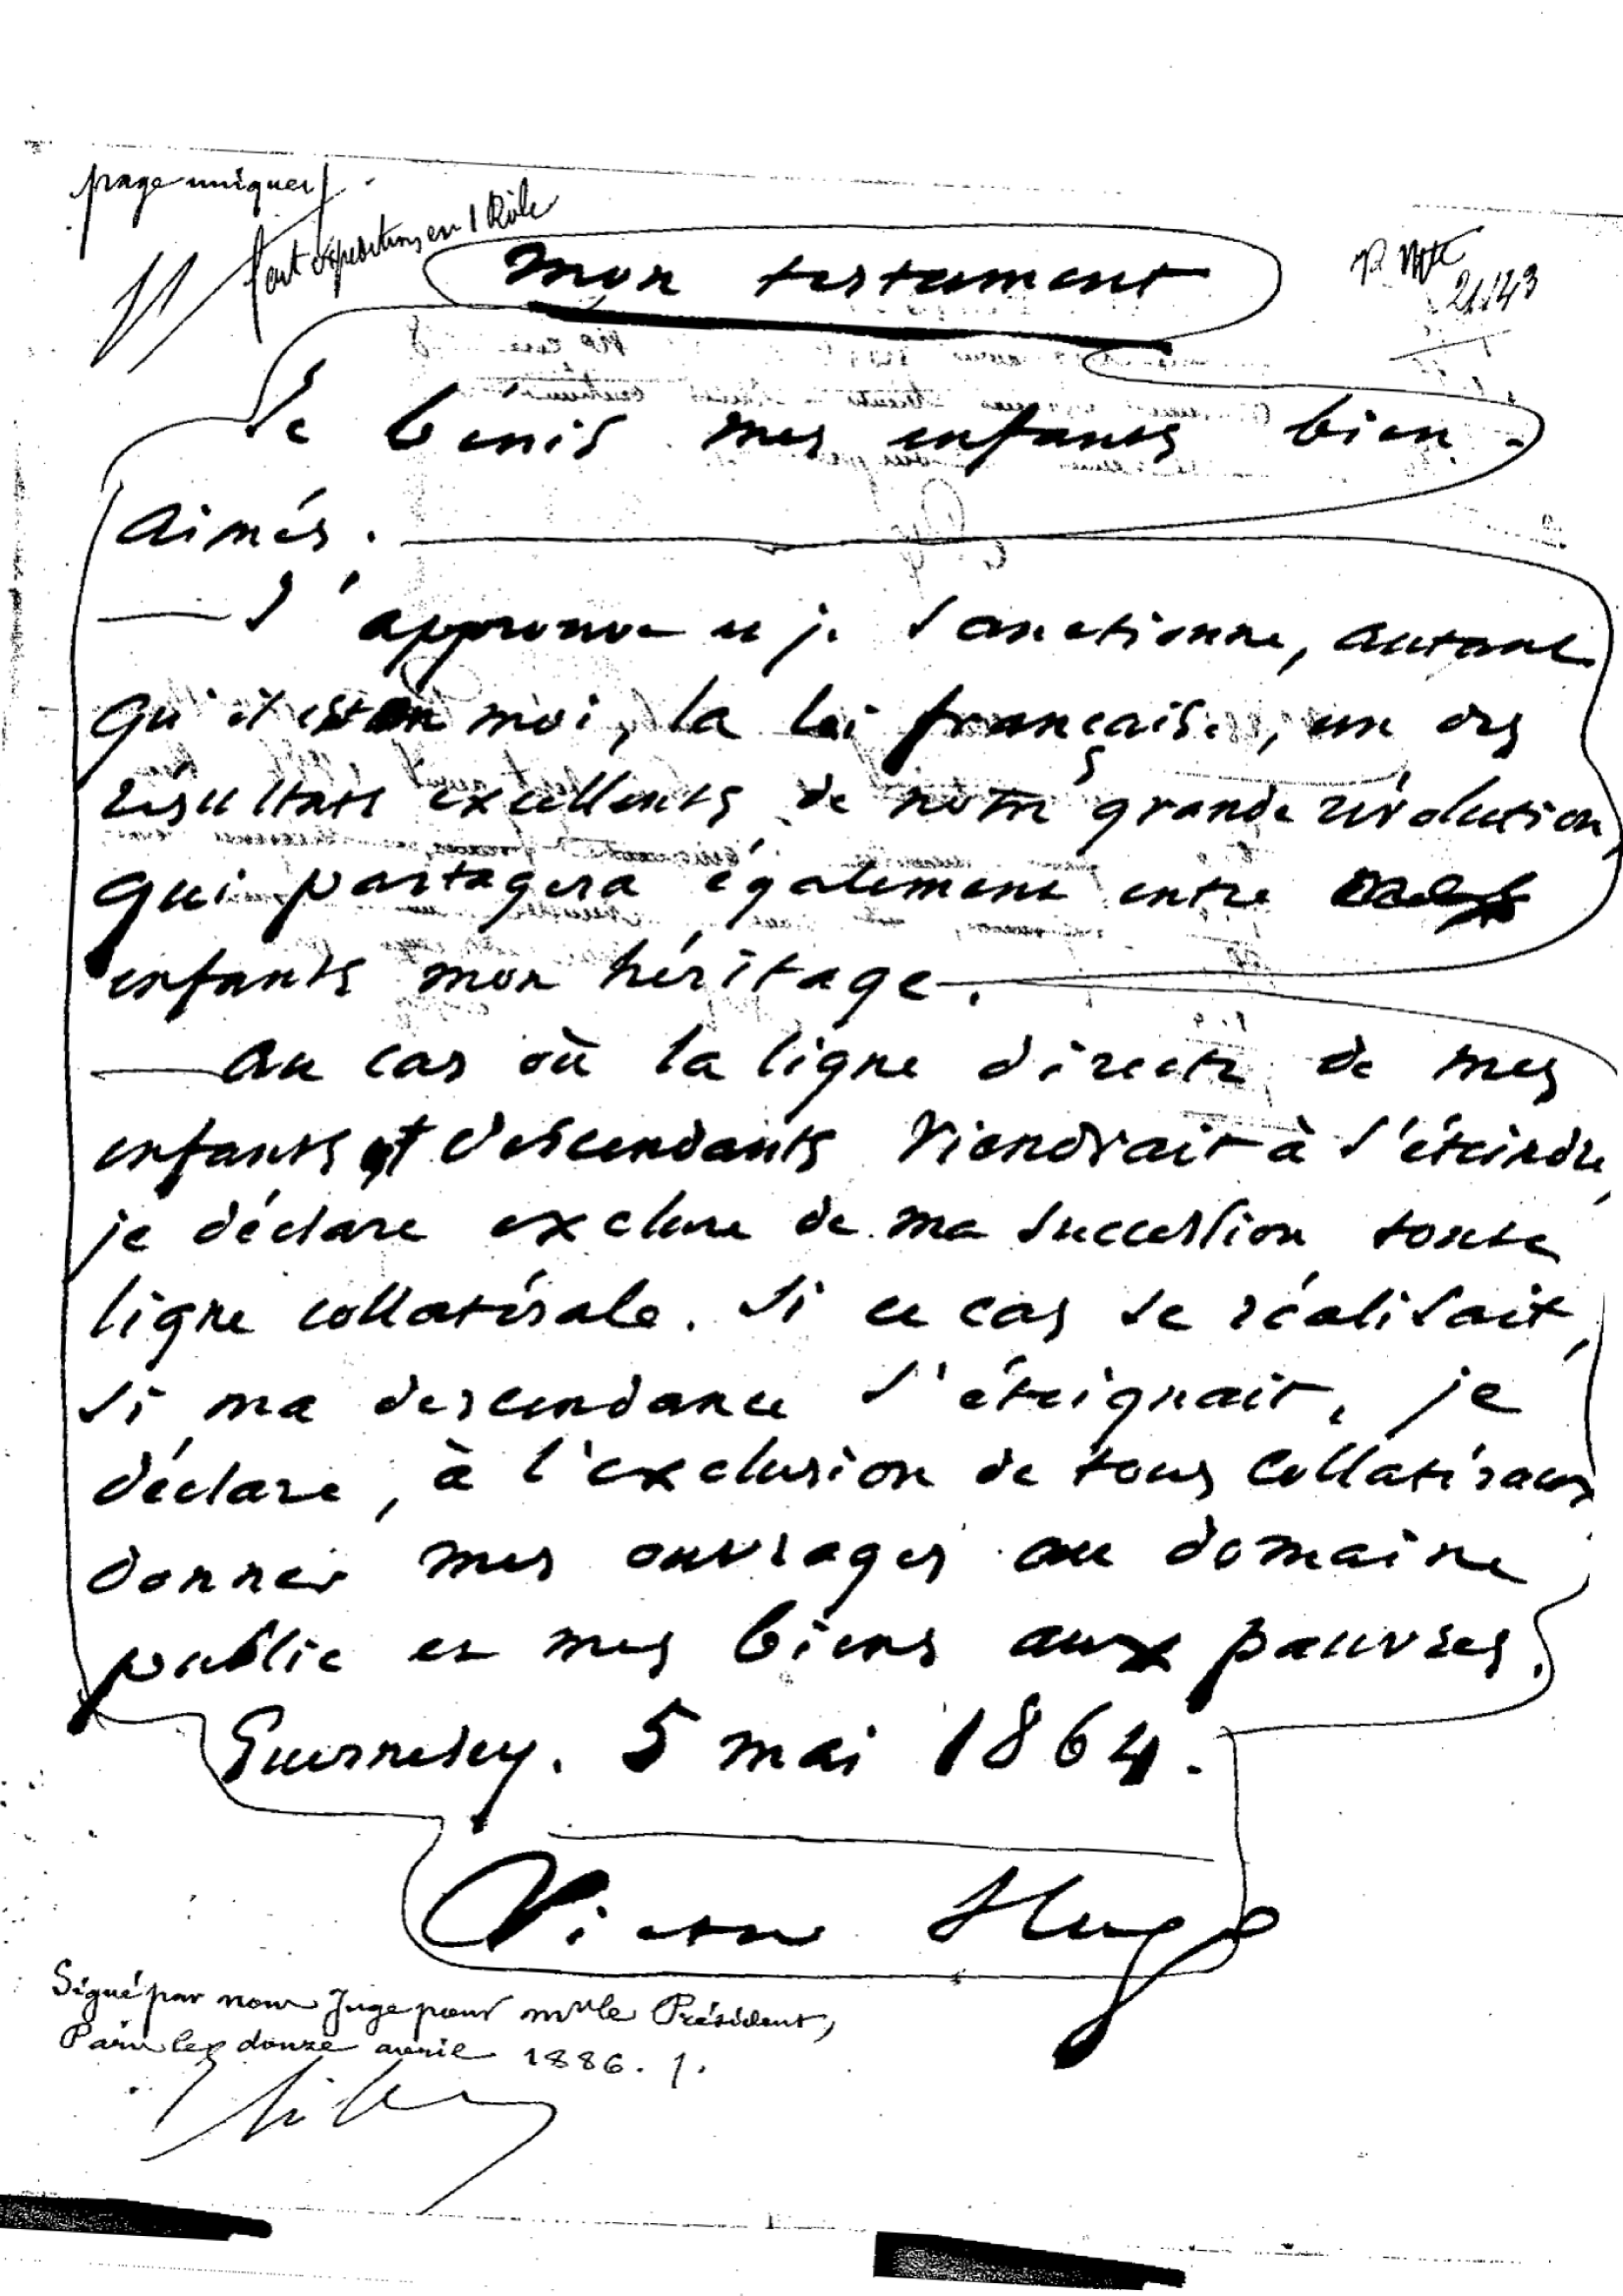 page unique
Mon testament
Je bénis mes enfants bien-
aimés.
J'approuve et je sanctionne, autant
qu'il est en moi, la loi française, un des
résultats excellents de notre grande révolution,
qui partagera également entre mes
enfants mon héritage.
Au cas où la ligne directe de mes
enfants et descendants viendrait à s'éteindre,
je déclare exclure de ma succession toute
ligne collatérale. Si ce cas se réalisait,
si ma descendance s'éteignait, je
déclare, à l'exclusion de tous collatéraux
donner mes ouvrages au domaine
public et mes biens aux pauvres.
Guernesey. 5 mai 1864.
Victor Hugo
Signé par nous Juge pour Mr le Président,
Paris le douze avril 1886.